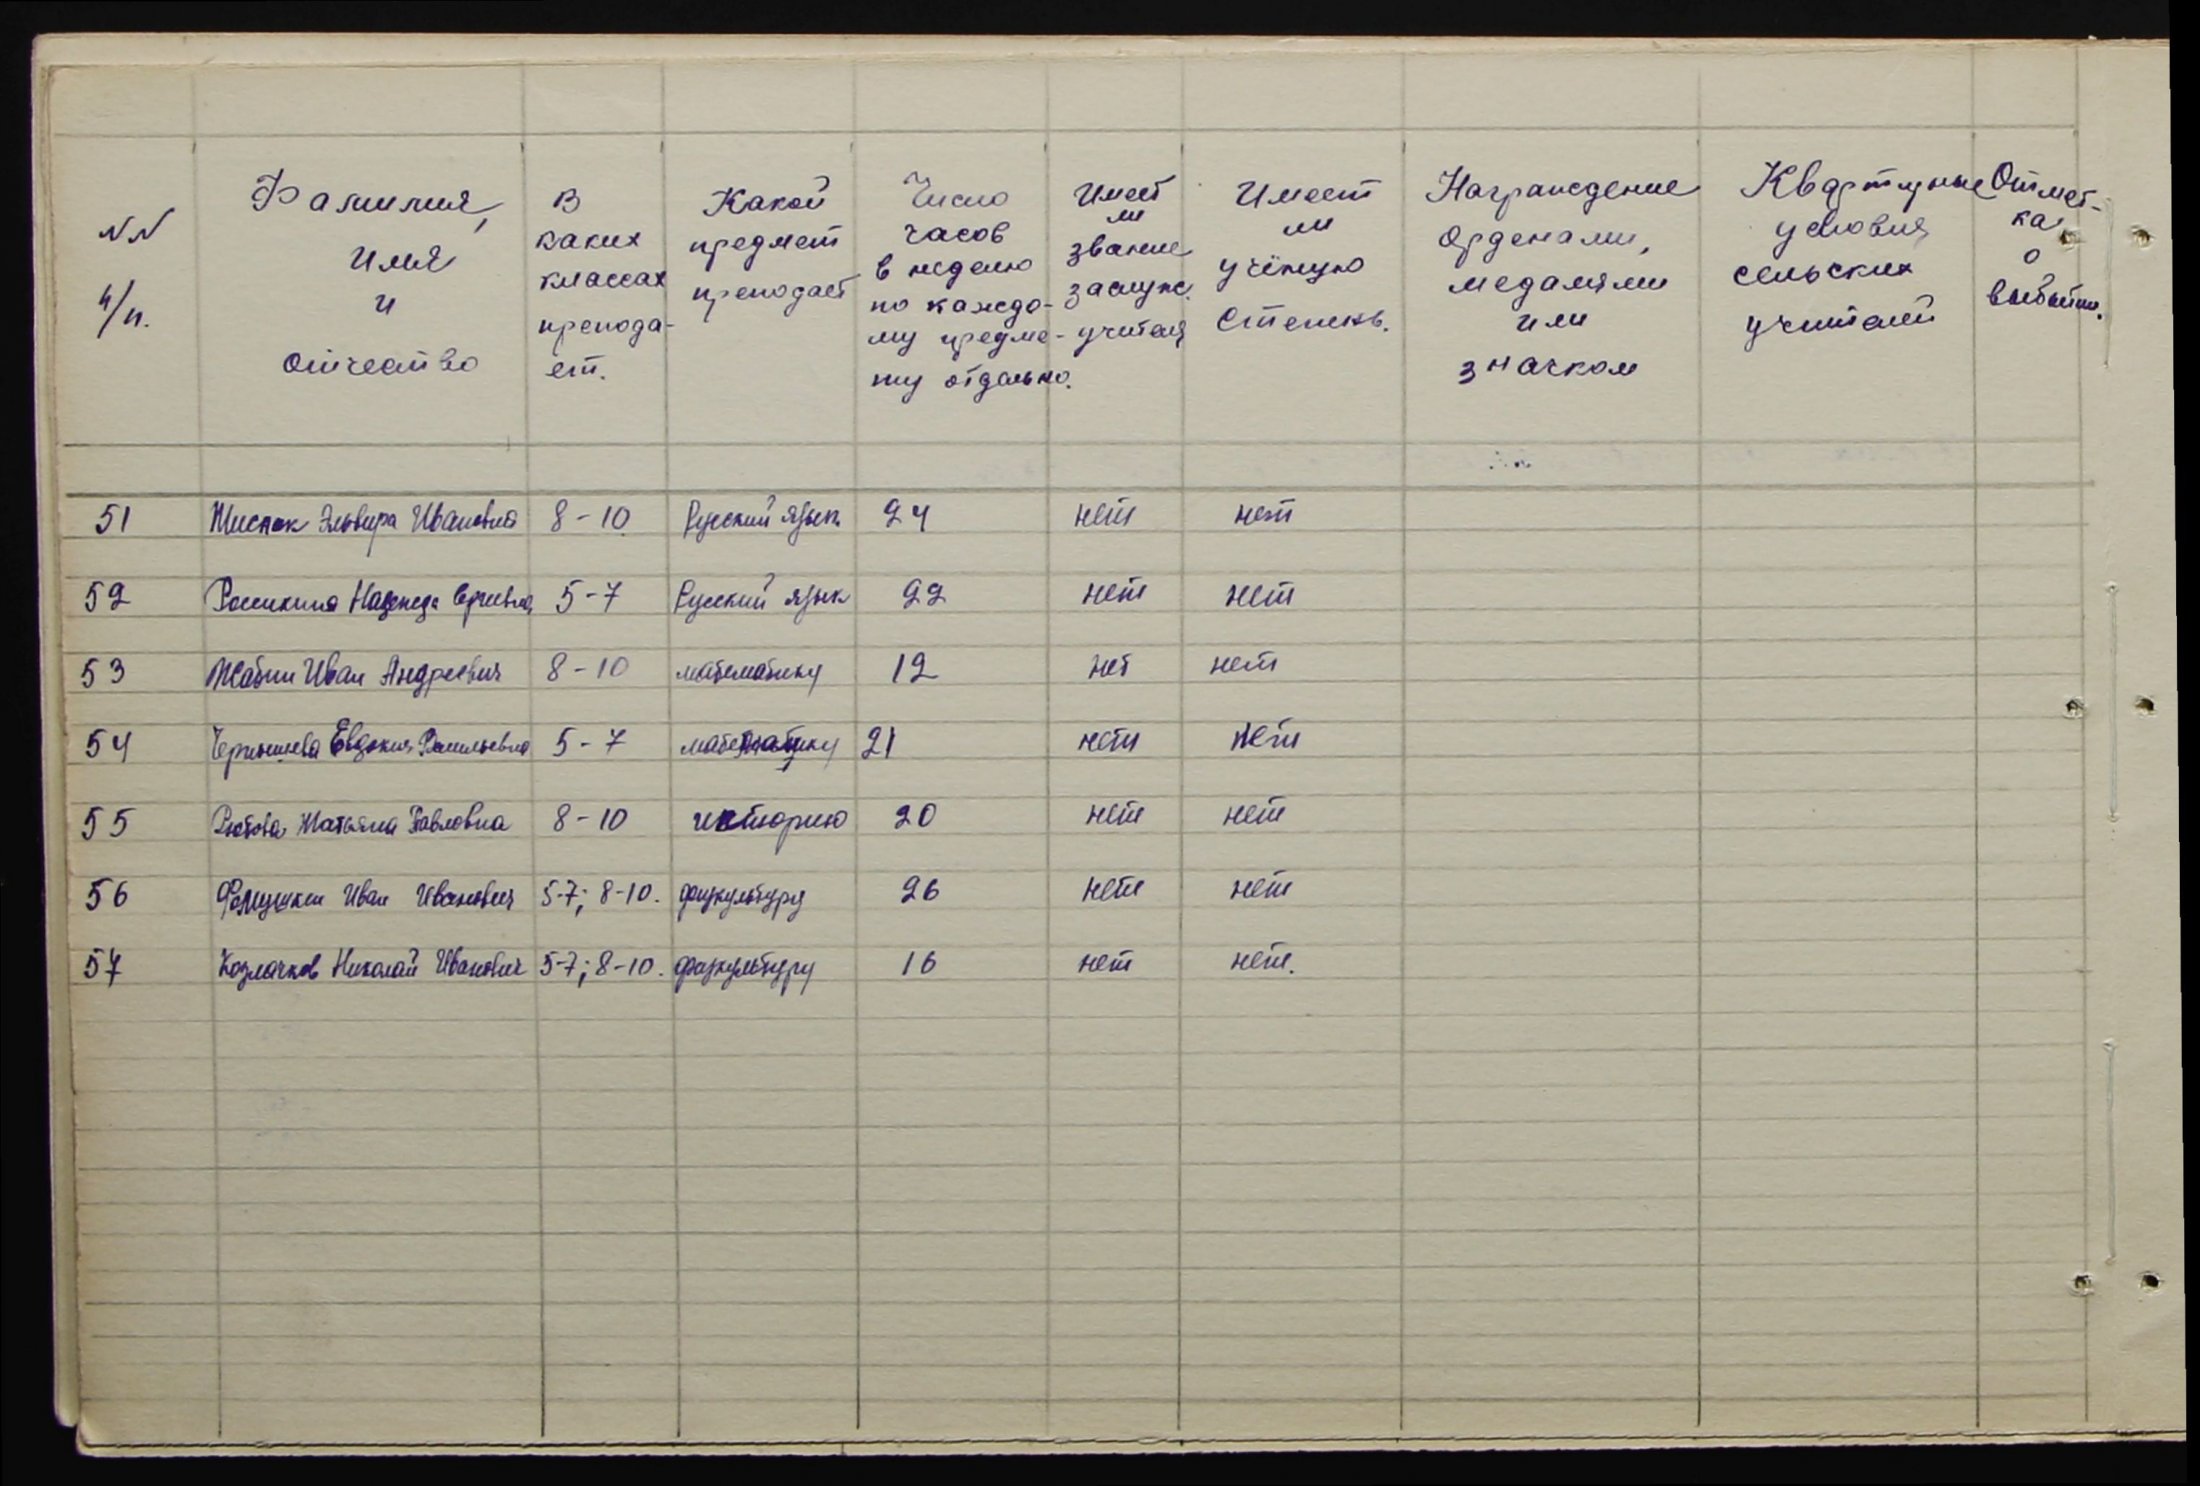 NN п/п.
Фамилия, имя и отчество
В каких классах препода-ет.
Какой предмет преподает
Число часов в неделю по каждо-му предме-ту отдельно.
Имеет ли звание заслуж. учителя
Имеет ли учёную степень.
Награждение орденами, медалями или значком
Квартирные условия сельских учителей
Отмет-ка о выбытии.
51 Эльвира Ивановна 8-10 Русский язык 24 нет нет
52 Надежда 5-7 Русский язык 22 нет нет
53 Жабин Иван Андреевич 8-10 математику 12 нет нет
54 Чернышева Евдокия Васильевна 5-7 математику 21 нет нет
55 Татьяна Павловна 8-10 историю 20 нет нет
56 Фомушкин Иван Иванович 5-7; 8-10. физкультуру 26 нет нет
57 Козлачков Николай Иванович 5-7; 8-10. физкультуру 16 нет нет.